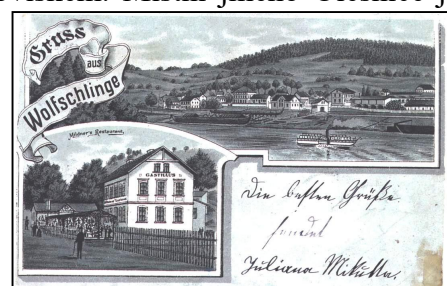 Gruss
aus
Wolfschlinge
Mildner's Restaurant.
GASTHAUS
Die besten Grüße
sendet
Juliana